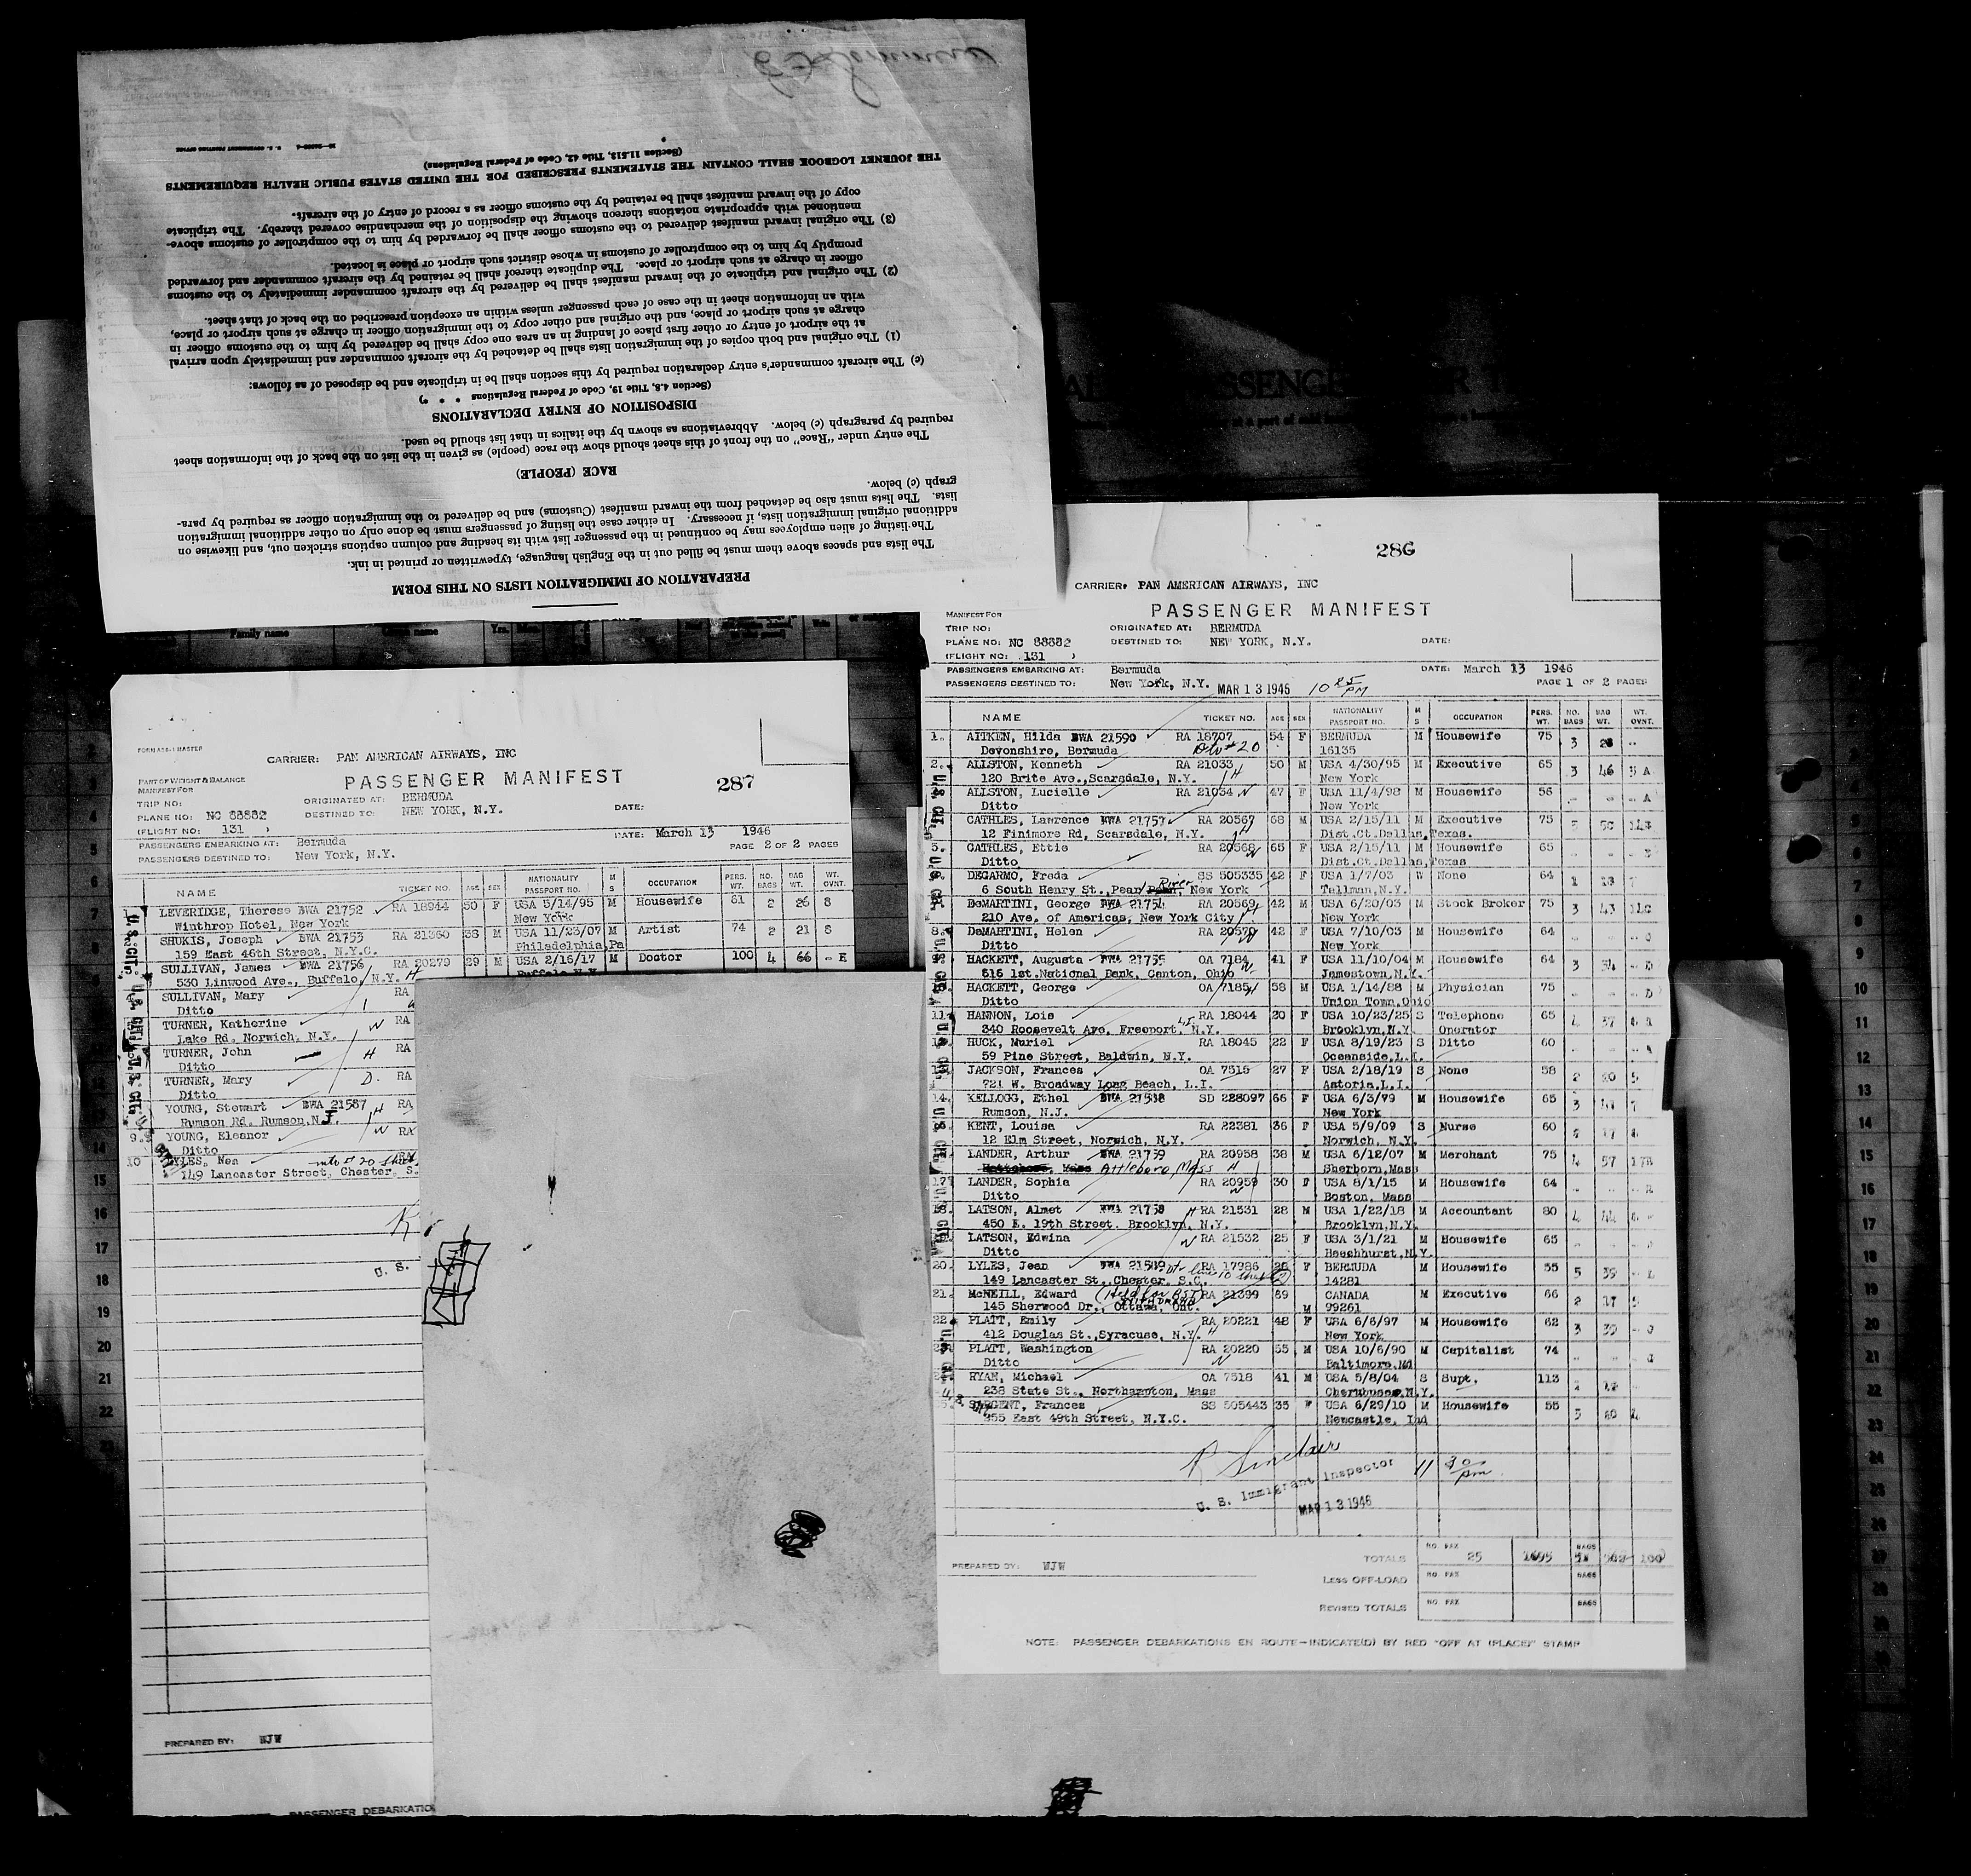 PREPARATION OF IMMIGRATION LISTS ON THIS FORM
The lists and spaces above them must be filled out in the English language, typewritten or printed in ink.
The listing of alien employees may be continued in the passenger list with its heading and column captions stricken out, and likewise on
additional original immigration lists, if necessary. In either case the listing of passengers must be done only on other additional immigration
lists. The lists must also be detached from the inward manifest (Customs) and be delivered to the immigration officer as required by para-
graph (c) below.
RACE (PEOPLE)
The entry under "Race" on the front of this sheet should show the race (people) as given in the list on the back of the information sheet
required by paragraph (c) below. Abbreviations as shown by the italics in that list should be used.
DISPOSITION OF ENTRY DECLARATIONS
(Section 4.8, Title 19, Code of Federal Regulations * * *)
(c) The aircraft commander's entry declaration required by this section shall be in triplicate and be disposed of as follows:
(1) The original and both copies of the immigration lists shall be detached by the aircraft commander and immediately upon arrival
at the airport of entry or other first place of landing in an area one copy shall be delivered by him to the customs officer in
charge at such airport or place, and the original and other copy to the immigration officer in charge at such airport or place,
with an information sheet in the case of each passenger unless within an exception prescribed on the back of that sheet.
(2) The original and triplicate of the inward manifest shall be delivered by the aircraft commander immediately to the customs
officer in charge at such airport or place. The duplicate thereof shall be retained by the aircraft commander and forwarded
promptly by him to the comptroller of customs in whose district such airport or place is located.
(3) The original inward manifest delivered to the customs officer shall be forwarded by him to the comptroller of customs above-
mentioned with appropriate notations thereon showing the disposition of the merchandise covered thereby. The triplicate
copy of the inward manifest shall be retained by the customs officer as a record of entry of the aircraft.
THE JOURNEY LOGBOOK SHALL CONTAIN THE STATEMENTS PRESCRIBED FOR THE UNITED STATES PUBLIC HEALTH REQUIREMENTS
(Section 11.513, Title 42, Code of Federal Regulations)
Family name
287
CARRIER: PAN AMERICAN AIRWAYS, INC
PASSENGER MANIFEST
PART OF WEIGHT & BALANCE
MANIFEST FOR
TRIP NO: ORIGINATED AT: BERMUDA
PLANE NO: NC 88882 DESTINED TO: NEW YORK, N.Y. DATE:
(FLIGHT NO: 131 )
PASSENGERS EMBARKING AT: Bermuda DATE: March 13 1946
PASSENGERS DESTINED TO: New York, N.Y. PAGE 2 OF 2 PAGES
NAME TICKET NO. AGE SEX NATIONALITY PASSPORT NO. M S OCCUPATION PERS. WT. NO. BAGS BAG WT. WT. OVNT.
LEVERIDGE, Therese BWA 21752 RA 18944 50 F USA 5/14/95 M Housewife 61 2 26 8
Winthrop Hotel, New York New York
SHUKIS, Joseph BWA 21753 RA 21360 38 M USA 11/23/07 M Artist 74 2 21 8
159 East 46th Street, N.Y.C. Philadelphia, Pa
SULLIVAN, James BWA 21756 RA 20279 29 M USA 2/16/17 M Doctor 100 4 66 - E
530 Linwood Ave., Buffalo, N.Y. H
SULLIVAN, Mary RA
Ditto
TURNER, Katherine W RA
Lake Rd. Norwich, N.Y.
TURNER, John H RA
Ditto
TURNER, Mary D. RA
Ditto
YOUNG, Stewart BWA 21587 H RA
Rumson Rd. Rumson, N.J.
9. YOUNG, Eleanor W RA
Ditto
10 LYLES, Nea
149 Lancaster Street, Chester, S.
U. S.
PREPARED BY: WJW
PASSENGER DEBARKATIO
286
CARRIER: PAN AMERICAN AIRWAYS, INC
PASSENGER MANIFEST
MANIFEST FOR
TRIP NO: ORIGINATED AT: BERMUDA
PLANE NO: NC 88882 DESTINED TO: NEW YORK, N.Y. DATE:
(FLIGHT NO: 131 )
PASSENGERS EMBARKING AT: Bermuda DATE: March 13 1946
PASSENGERS DESTINED TO: New York, N.Y. MAR 13 1946 10 25 PM PAGE 1 OF 2 PAGES
NAME TICKET NO. AGE SEX NATIONALITY PASSPORT NO. M S OCCUPATION PERS. WT. NO. BAGS BAG WT. WT. OVNT.
1. AITKEN, Hilda BWA 21590 RA 18707 54 F BERMUDA M Housewife 75 3
Devonshire, Bermuda 16135
2. ALLSTON, Kenneth RA 21033 50 M USA 4/30/95 M Executive 65 3 46
120 Brite Ave., Scarsdale, N.Y. H New York
ALLSTON, Lucielle RA 21034 W 47 F USA 11/4/98 M Housewife 56
Ditto New York
CATHLES, Lawrence BWA 21757 RA 20567 68 M USA 2/15/11 M Executive 75
12 Finimore Rd, Scarsdale, N.Y. H Dist.Ct.Dallas, Texas.
5. CATHLES, Ettie RA 20568 W 65 F USA 2/15/11 M Housewife 65
Ditto Dist.Ct.Dallas, Texas
DEGARMO, Freda SS 505335 42 F USA 1/7/03 W None 64
6 South Henry St., Pearl River, New York Tallman, N.Y.
DeMARTINI, George BWA 21754 RA 20569 42 M USA 6/20/03 M Stock Broker 75 3 43
210 Ave. of Americas, New York City H New York
8. DeMARTINI, Helen RA 20570 42 F USA 7/10/03 M Housewife 64
Ditto W New York
HACKETT, Augusta BWA 21755 OA 7184 41 F USA 11/10/04 M Housewife 64 3
816 1st. National Bank, Canton, Ohio W Jamestown, N.Y.
HACKETT, George OA 7185 H 58 M USA 1/14/88 M Physician 75
Ditto Union Town, Ohio
11. HANNON, Lois RA 18044 20 F USA 10/23/25 S Telephone 65
340 Roosevelt Ave. Freeport, L.I. N.Y. Brooklyn, N.Y. Operator
HUCK, Muriel RA 18045 22 F USA 8/19/23 S Ditto 60
59 Pine Street, Baldwin, N.Y. Oceanside, L.I.
JACKSON, Frances OA 7515 27 F USA 2/18/19 S None 58
721 W. Broadway Long Beach, L.I. Astoria, L.I.
14. KELLOGG, Ethel BWA 21588 SD 228097 66 F USA 6/3/79 M Housewife 65 3
Rumson, N.J. New York
KENT, Louisa RA 22381 36 F USA 5/9/09 S Nurse 60
12 Elm Street, Norwich, N.Y. Norwich, N.Y.
LANDER, Arthur BWA 21759 RA 20958 38 M USA 6/12/07 M Merchant 75 4 57
Attleboro, Mass H Sherborn, Mass
17. LANDER, Sophia RA 20959 30 F USA 8/1/15 M Housewife 64
Ditto W Boston, Mass
18. LATSON, Almet BWA 21758 H RA 21531 28 M USA 1/22/18 M Accountant 80 4 44
450 E. 19th Street, Brooklyn, N.Y. Brooklyn, N.Y.
LATSON, Edwina W RA 21532 25 F USA 3/1/21 M Housewife 65
Ditto Beechhurst, N.Y.
20. LYLES, Jean BWA 21589 RA 17986 28 F BERMUDA M Housewife 55 5 39
149 Lancaster St., Chester, S.C. 14281
21. McNEILL, Edward (Held for BSI) RA 21399 59 CANADA M Executive 66
145 Sherwood Dr., Ottawa, Ont. M 99261
22. PLATT, Emily RA 20221 48 F USA 6/6/97 M Housewife 62 3
412 Douglas St., Syracuse, N.Y. H New York
PLATT, Washington RA 20220 55 M USA 10/6/90 M Capitalist 74
Ditto W Baltimore, Md
RYAN, Michael OA 7518 41 M USA 5/8/04 S Supt. 113
238 State St., Northampton, Mass
SARGENT, Frances SS 505443 35 F USA 6/29/10 M Housewife 55
955 East 49th Street, N.Y.C. Newcastle, Ind
R Sinclair
U. S. Immigrant Inspector 11 30 pm
MAR 13 1946
PREPARED BY: WJW
TOTALS NO. PAX 25 1695 BAGS
LESS OFF-LOAD NO. PAX BAGS
REVISED TOTALS NO. PAX BAGS
NOTE: PASSENGER DEBARKATIONS EN ROUTE—INDICATE(D) BY RED "OFF AT (PLACE)" STAMP